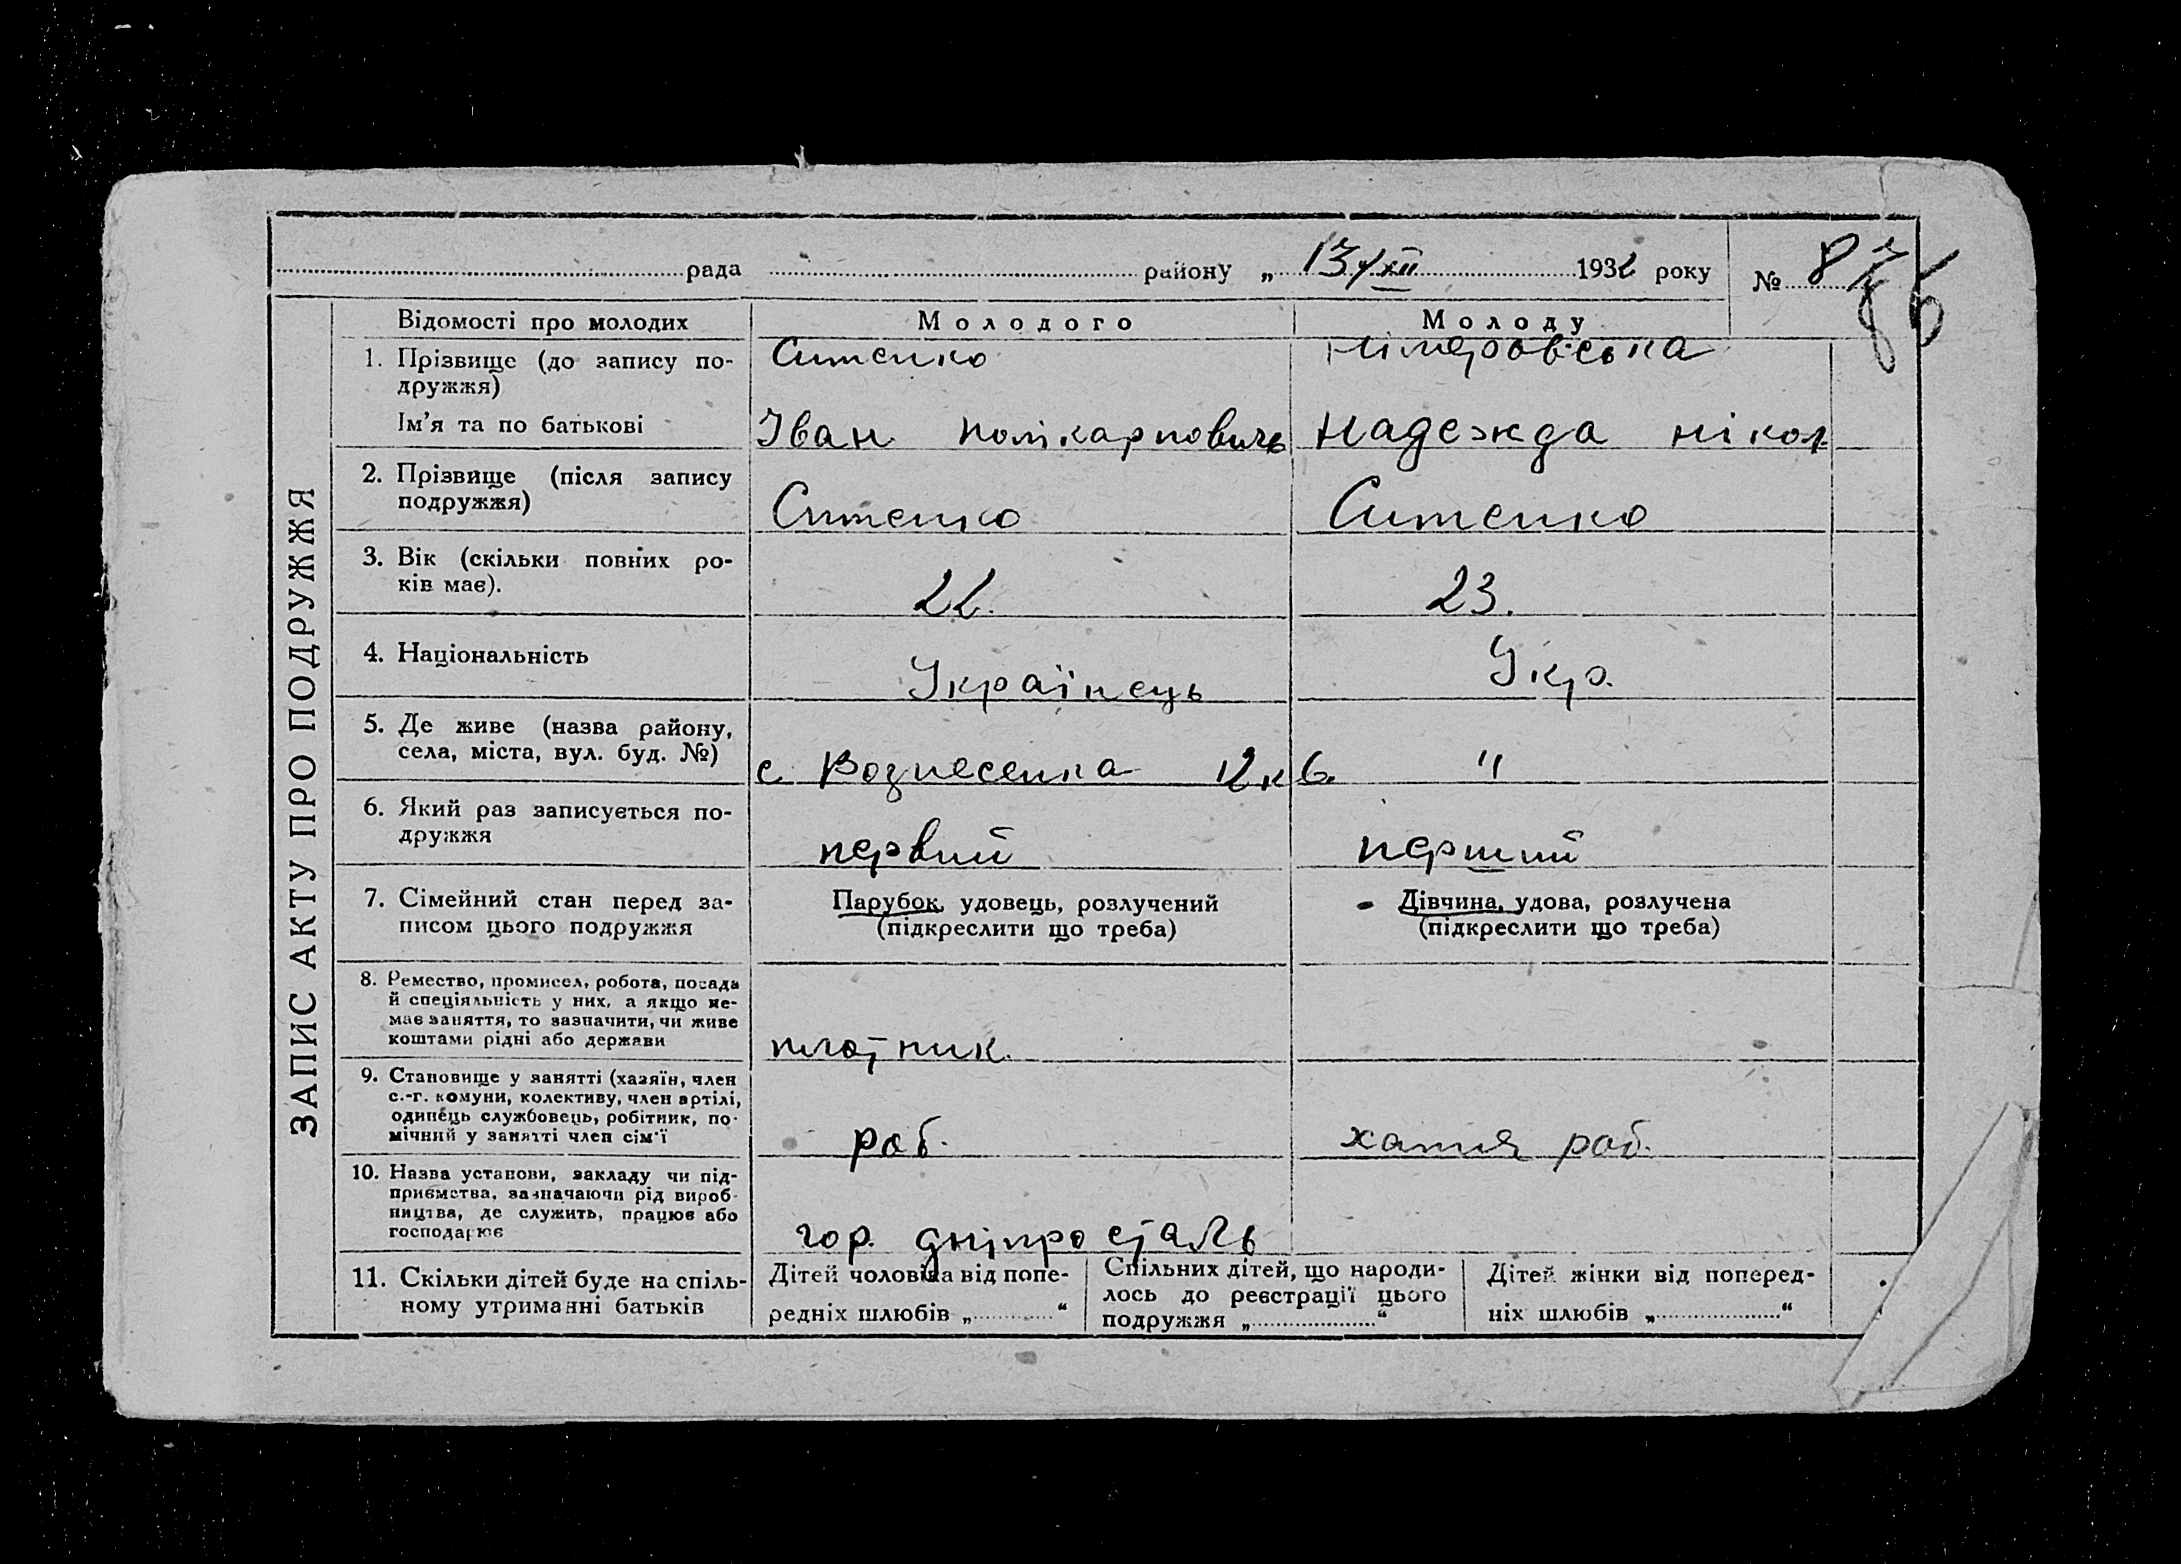 рада району „ 13/XII 1932 року № 87
86
ЗАПИС АКТУ ПРО ПОДРУЖЖЯ
Відомості про молодих Молодого Молоду
1. Прізвище (до запису по-
дружжя)
Ситенко
Ім'я та по батькові Іван Полікарповичь Надежда Нікол
2. Прізвище (після запису
подружжя) Ситенко Ситенко
3. Вік (скільки повних ро-
ків має). 22. 23.
4. Національність Українець Укр.
5. Де живе (назва району,
села, міста, вул. буд. №) с Вознесенка 12 кв. "
6. Який раз записується по-
дружжя первий перший
7. Сімейний стан перед за-
писом цього подружжя
Парубок, удовець, розлучений
(підкреслити що треба)
Дівчина, удова, розлучена
(підкреслити що треба)
8. Ремество, промисел, робота, посада
й спеціяльність у них, а якщо не-
має заняття, то зазначити, чи живе
коштами рідні або держави плотник.
9. Становище у занятті (хазяїн, член
с.-г. комуни, колективу, член артілі,
одинець службовець, робітник, по-
мічний у занятті член сім'ї роб. хатня роб.
10. Назва установи, закладу чи під-
приємства, зазначаючи рід вироб-
ництва, де служить, працює або
господарює гор. Дніпросталь
11. Скільки дітей буде на спіль-
ному утриманні батьків
Дітей чоловіка від попе-
редніх шлюбів „ “
Спільних дітей, що народи-
лось до реєстрації цього
подружжя „ “
Дітей жінки від поперед-
ніх шлюбів „ “